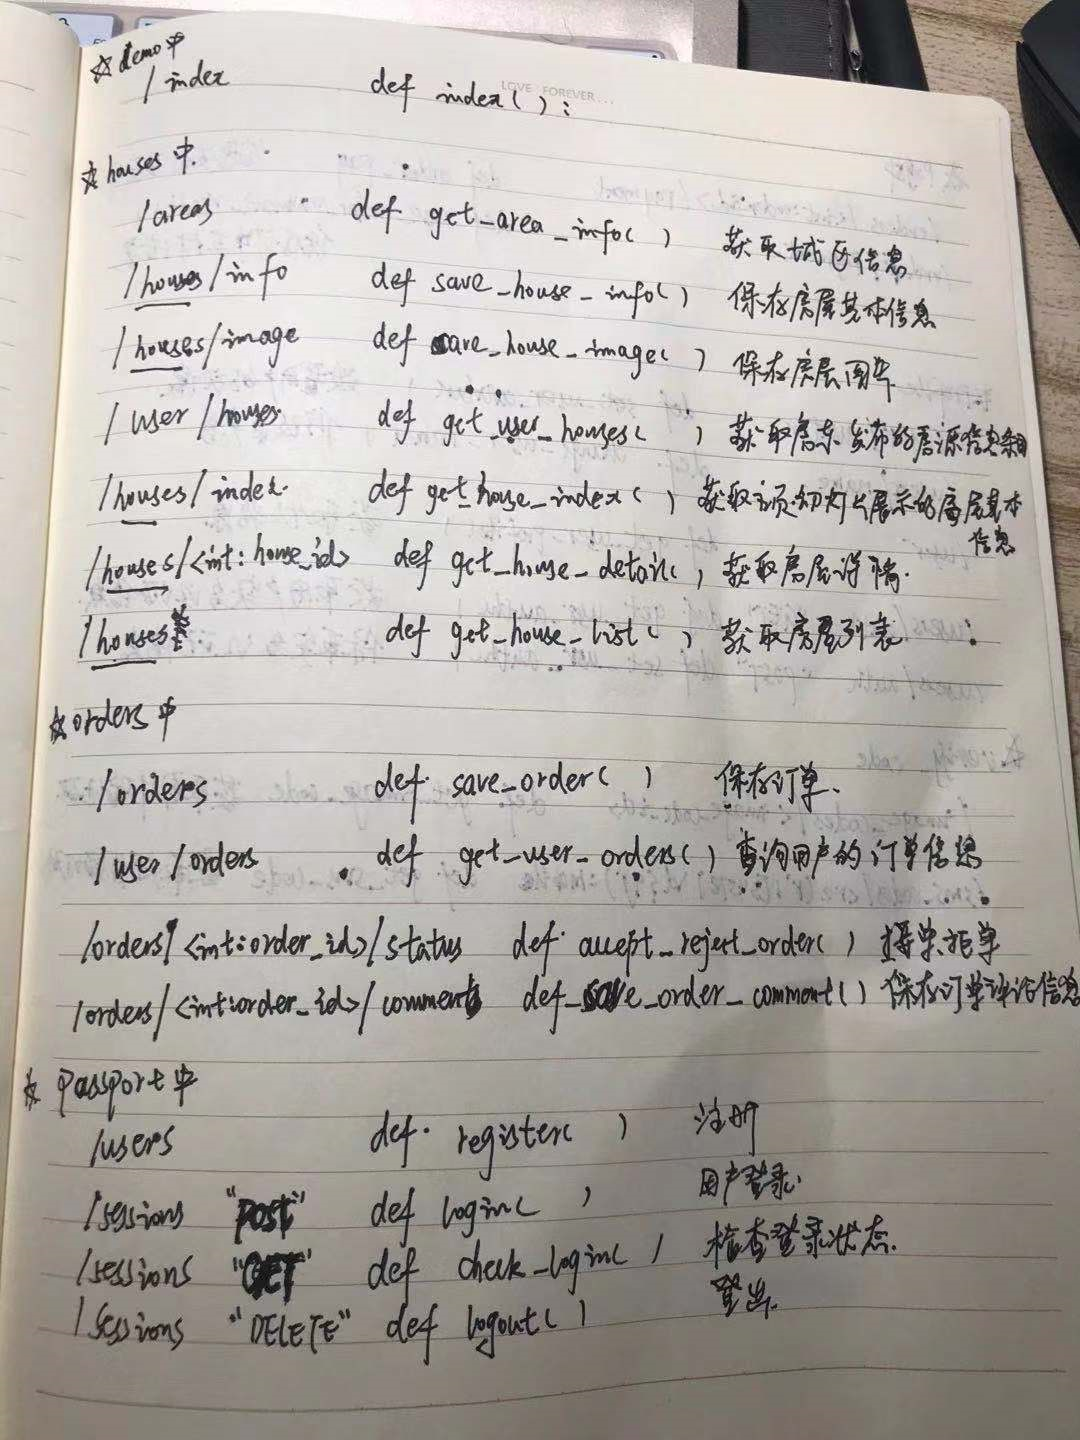 ☆ demo中
/index def index():
LOVE FOREVER...
☆ houses中.
/areas def get_area_info() 获取城区信息
/houses/info def save_house_info() 保存房屋基本信息
/houses/image def save_house_image() 保存房屋图片
/user/houses def get_user_houses() 获取房东发布的房源信息条目
/houses/index def get_house_index() 获取主页幻灯片展示的房屋基本
信息
/houses/<int:house_id> def get_house_detail() 获取房屋详情.
/houses def get_house_list() 获取房屋列表
☆ orders中
/orders def save_order() 保存订单.
/user/orders def get_user_orders() 查询用户的订单信息
/orders/<int:order_id>/status def accept_reject_order() 接单拒单
/orders/<int:order_id>/comment def save_order_comment() 保存订单评论信息
☆ passport中
/users def register() 注册
/sessions "POST" def login() 用户登录.
/sessions "GET" def check_login() 检查登录状态.
/sessions "DELETE" def logout() 登出.